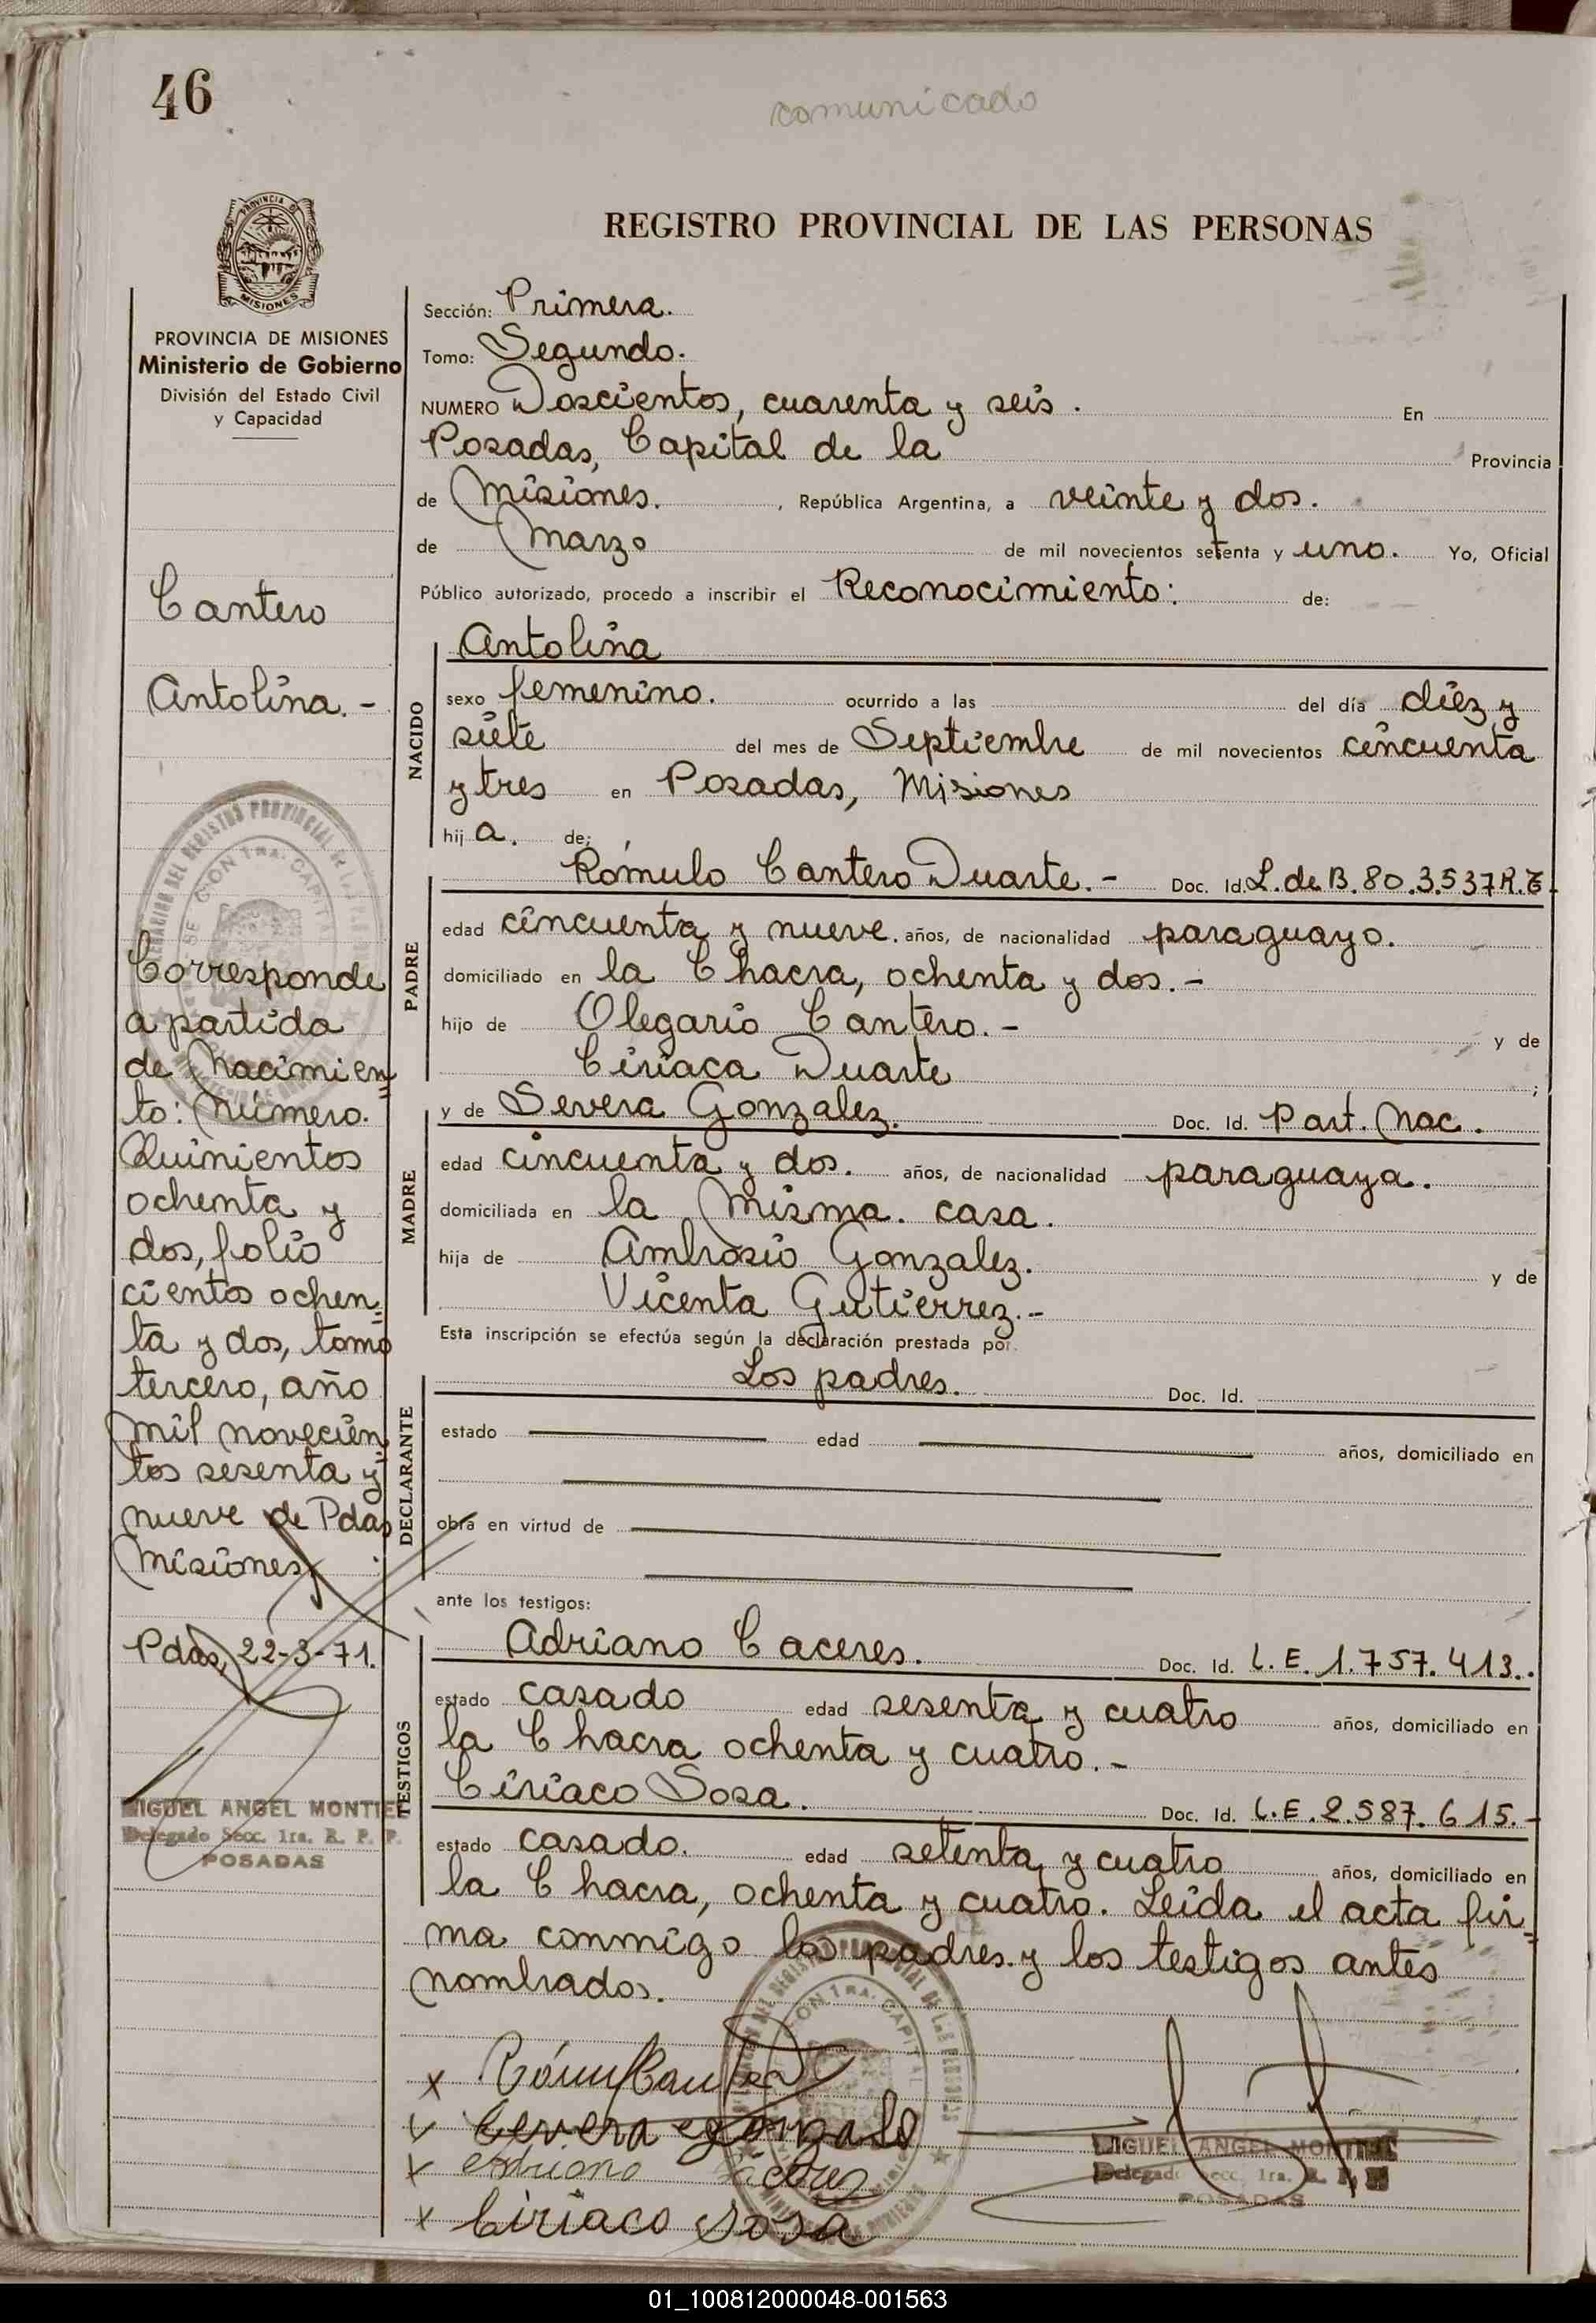 46
comunicado
PROVINCIA DE
MISIONES
PROVINCIA DE MISIONES
Ministerio de Gobierno
División del Estado Civil
y Capacidad
REGISTRO PROVINCIAL DE LAS PERSONAS
Sección: Primera.
Tomo: Segundo.
NUMERO Doscientos, cuarenta y seis. En
Posadas, Capital de la Provincia
de Misiones. , República Argentina, a veinte y dos.
de Marzo de mil novecientos setenta y uno. Yo, Oficial
Público autorizado, procedo a inscribir el Reconocimiento: de:
Cantero
Antolina.-
NACIDO
Antolina
sexo femenino. ocurrido a las del día diez y
siete del mes de Septiembre de mil novecientos cincuenta
y tres en Posadas, Misiones
hij a. de:
PADRE
Rómulo Cantero Duarte.- Doc. Id. L. de B. 80.3.537 R.E.
edad cincuenta y nueve. años, de nacionalidad paraguayo.
domiciliado en la Chacra, ochenta y dos.-
hijo de Olegario Cantero.- y de
Ciriaca Duarte ;
MADRE
y de Severa Gonzalez. Doc. Id. Part. Nac.
edad cincuenta y dos. años, de nacionalidad paraguaya.
domiciliada en la misma. casa.
hija de Ambrosio Gonzalez. y de
Vicenta Gutierrez.-
Esta inscripción se efectúa según la declaración prestada por
DECLARANTE
Los padres. Doc. Id.
estado edad años, domiciliado en
obra en virtud de
ante los testigos:
TESTIGOS
Adriano Caceres. Doc. Id. L.E. 1.757.413..
estado casado edad sesenta y cuatro años, domiciliado en
la Chacra ochenta y cuatro.-
Ciriaco Sosa. Doc. Id. L.E. 2.587.615.-
estado casado. edad setenta y cuatro años, domiciliado en
la Chacra, ochenta y cuatro. Leida el acta fir=
ma conmigo los padres. y los testigos antes
nombrados.
Corresponde
a partida
de Nacimien=
to: Número.
Quinientos
ochenta y
dos, folio
ciento ochen=
ta y dos, tomo
tercero, año
mil novecien=
tos sesenta y
nueve de Pdas
Misiones
Pdas, 22-3-71.
MIGUEL ANGEL MONTIEL
Delegado Secc. 1ra. R. P. P.
POSADAS
x
Severa gonzale
x
x Ciriaco Sosa
MIGUEL ANGEL MONTIEL
Delegado Secc. 1ra. R. P. P.
POSADAS
01_100812000048-001563